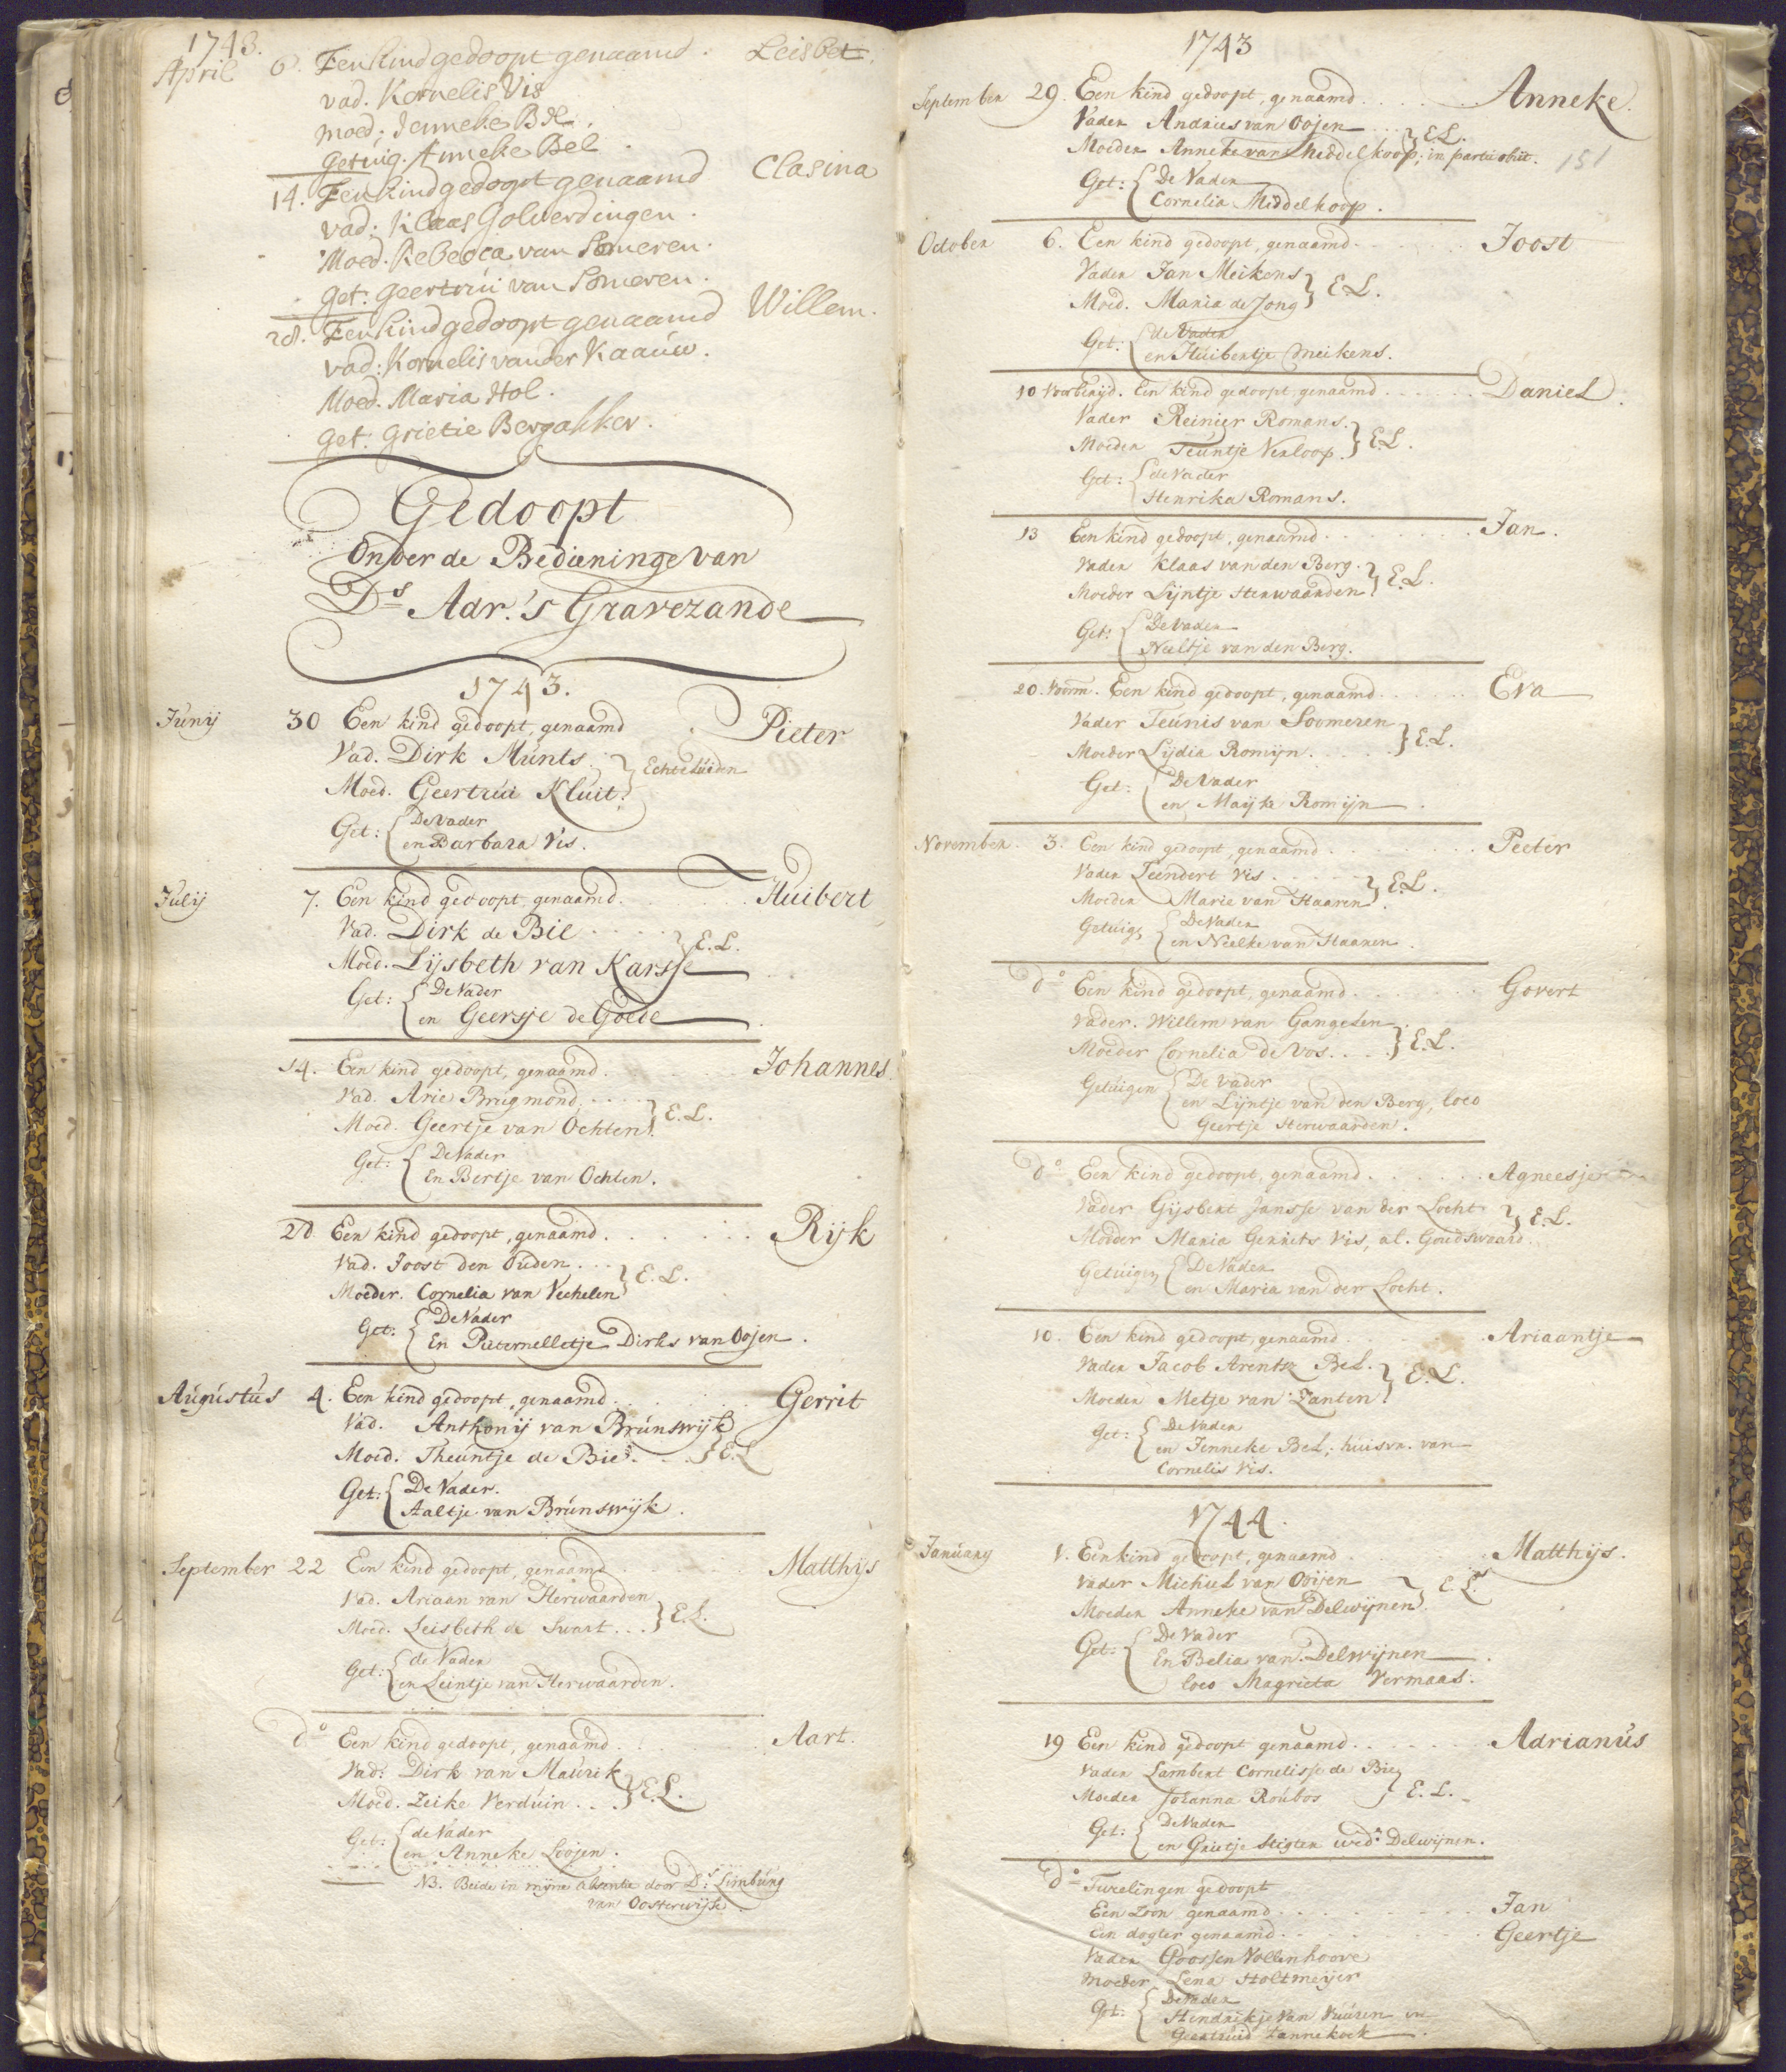 1743.
April 6. Een kind gedoopt genaamd. Leisbet.
vad. Kornelis Vis
moed: Jenneke Bel.
Getuig. Anneke Bel.
14. Een kind gedoopt genaamd Clasina
vad: Klaas Golverdingen.
Moed. Rebecca van Someren.
Get: Geertrui van Someren.
28. Een kind gedoopt genaamd Willem.
vad: Kornelis vander Kaauw.
Moed. Maria Hol.
Get: Grietie Bergakker.
Gedoopt
Onder de Bedieninge van
Ds Adr. 's Gravezande
1743.
Junij 30 Een kind gedoopt, genaamd Pieter
Vad. Dirk Munts.
Moed. Geertrui Kluit. } Echteluiden
Get: { De Vader
en Barbara Vis.
Julij 7. Een kind gedoopt genaamd. Huibert
Vad. Dirk de Bie
Moed. Lijsbeth van Karsse } E.L.
Get: { De Vader
en Geersje de Goede
14. Een kind gedoopt, genaamd. Johannes.
Vad. Arie Brugmond.
Moed. Geertje van Ochten. } E.L.
Get: { De Vader
En Bertje van Ochten.
28 Een kind gedoopt, genaamd. Rijk
Vad. Joost den Ouden.
Moeder. Cornelia van Vechelen } E.L.
Get: { De Vader
En Pieternelletje Dirks van Oojen.
Augustus 4. Een kind gedoopt, genaamd. Gerrit
Vad. Anthonij van Brunswijk
Moed. Theuntje de Bie. } E.L
Get: { De Vader.
Aaltje van Brunswijk.
September 22 Een kind gedoopt, genaamd Matthijs
Vad. Ariaan van Herwaarden
Moed. Leisbeth de Swart... } E.L.
Get: { de Vader
en Leintje van Herwaarden.
do Een kind gedoopt, genaamd. Aart.
Vad: Dirk van Maurik
Moed. Zeike Verduin... } E.L.
Get: { de Vader
en Anneke Loojen.
NB. Beide in mijne absentie door Ds. Limburg
van Oosterwijk.
1743
September 29. Een kind gedoopt, genaamd.... Anneke.
Vader Andries van Oojen
Moeder Anneke van Middelkoop; in partu obiit. } E.L. 151
Get: { De Vader
Cornelia Middelkoop.
October 6. Een kind gedoopt, genaamd. Joost
Vader Jan Meikens
Moed. Maria de Jong } E.L.
Get: { de Vader
en Huibertje Meikens.
10 Voorberijd. Een kind gedoopt, genaamd..... Daniel.
Vader Reinier Romans.
Moeder Teuntje Verloop. } E.L.
Get: { de Vader
Henrika Romans.
13 Een kind gedoopt, genaamd........ Jan.
Vader Klaas van den Berg.
Moeder Lijntje Sterwaarden } E.L.
Get: { De Vader
Neeltje van den Berg.
20. Voorm. Een kind gedoopt, genaamd...... Eva
Vader Teunis van Soomeren
Moeder Lijdia Romijn..... } E.L.
Get: { De Vader
en Maijke Romijn.
November. 3. Een kind gedoopt, genaamd........ Peeter
Vader Leendert Vis.....
Moeder Marie van Haaren. } E.L.
Getuig { De Vader
en Neelke van Haaren.
do Een kind gedoopt, genaamd....... Govert
Vader. Willem van Gangelen.
Moeder Cornelia de Vos.... } E.L.
Getuigen { De Vader
en Lijntje van den Berg, loco
Geertje Sterwaarden.
do Een kind gedoopt, genaamd...... Agneesje
Vader Gijsbert Jansse van der Locht
Moeder Maria Gerrits Vis, al. Goudswaard. } E.L.
Getuigen { De Vader
en Maria van der Locht.
10. Een kind gedoopt, genaamd. Ariaantje
Vader Jacob Arentz Bel.
Moeder Metje van Zanten. } E.L.
Get: { De Vader
en Jenneke Bel, huisvr. van
Cornelis Vis.
1744.
January 1. Een kind gedoopt, genaamd. Matthijs.
Vader Michiel van Ooijen
Moeder Anneke van Delwijnen } E.L.
Get: { De Vader
En Belia van Delwijnen.
loco Magrieta Vermaas.
19 Een kind gedoopt genaamd...... Adrianus
Vader Lambert Cornelisse de Bie
Moeder Johanna Roubos } E.L.
Get: { De Vader
en Grietje Stigter wed. Delwijnen.
do Tweelingen gedoopt
Een Zoon genaamd......... Jan
Een dogter genaamd........ Geertje
Vader Goossen Vollenhoove
Moeder Lena Holtmeijer
Get: { De Vader
Hendrikje van Vuuren en
Geertruid Tannekock.